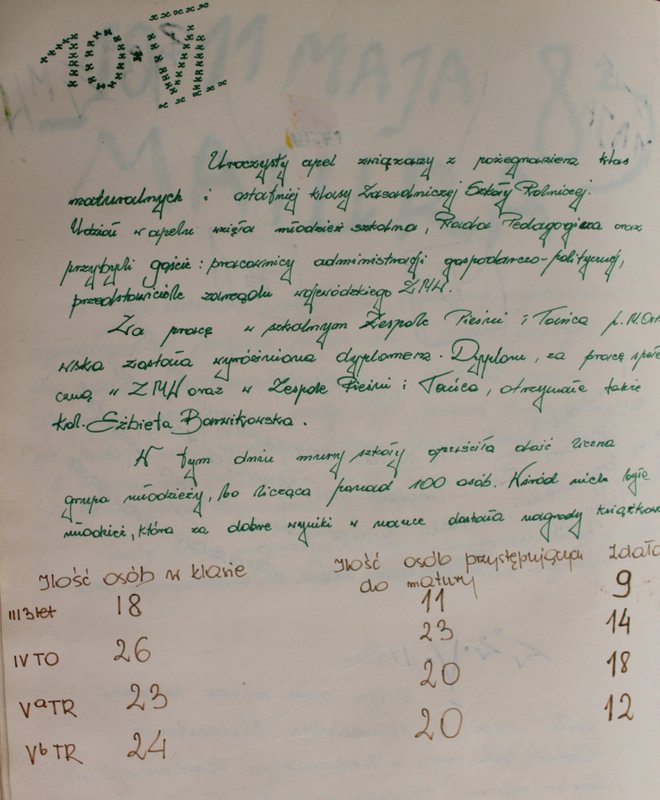 Uroczysty apel związany z pożegnaniem klas
maturalnych i ostatniej klasy Zasadniczej Szkoły Rolniczej.
Udział w apelu wzięła młodzież szkolna, Rada Pedagogiczna oraz
przybyli goście: pracownicy administracji gospodarczo-politycznej,
przedstawiciele zarządu wojewódzkiego ZMW.
Za pracę w szkolnym Zespole Pieśni i Tańca p. M.
wska została wyróżniona dyplomem. Dyplom, za pracę społe
czną w ZMW oraz w Zespole Pieśni i Tańca, otrzymała także
kol. Elżbieta Borwikowska.
W tym dniu mury szkoły opuściła dość liczna
grupa młodzieży, bo licząca ponad 100 osób. Wśród nich była
młodzież, która za dobre wyniki w nauce dostała nagrody książkow
Ilość osób w klasie Ilość osób przystępujących do matury Zdało
III 3 let 18 11 9
IV TO 26 23 14
Va TR 23 20 18
Vb TR 24 20 12